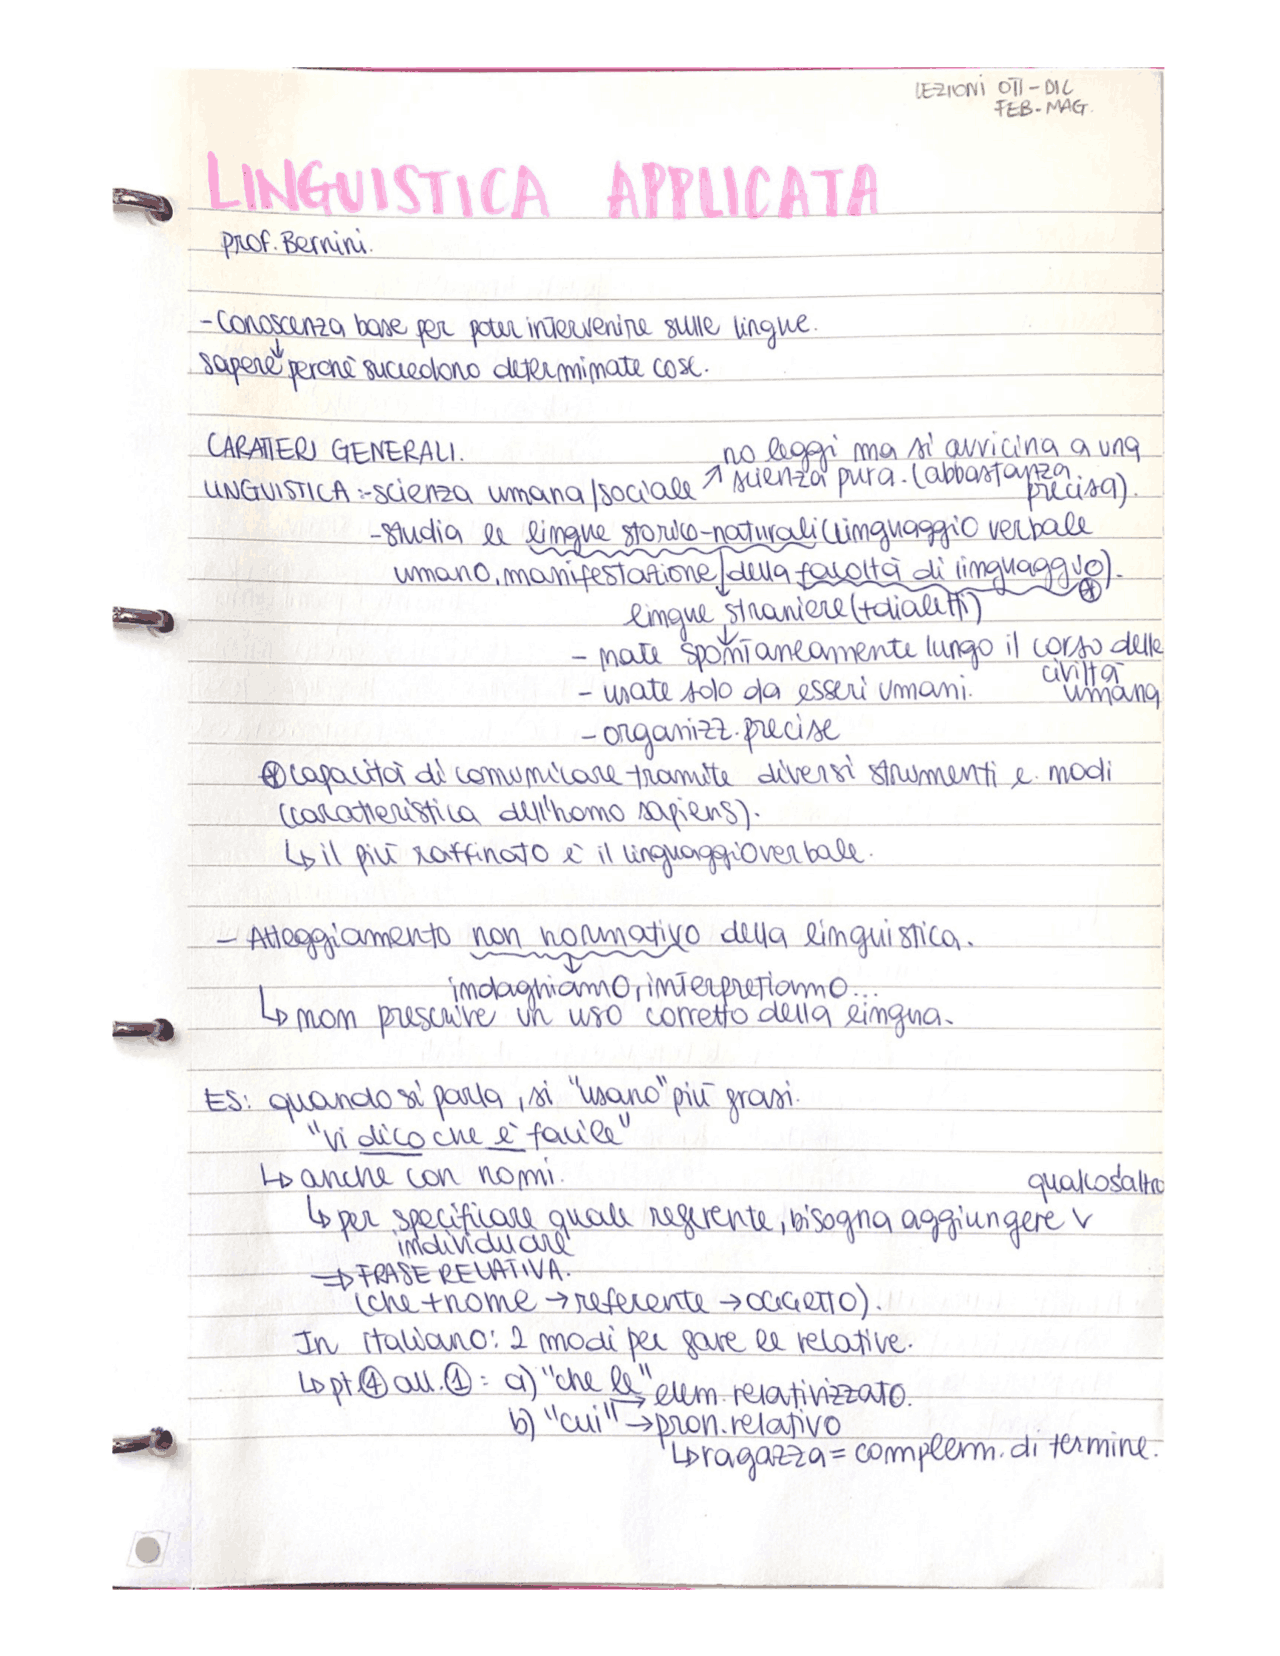 LEZIONI OTT-DIC
FEB-MAG.
LINGUISTICA APPLICATA
prof. Bernini.
- Conoscenza base per poter intervenire sulle lingue.
↓
sapere perché succedono determinate cose.
CARATTERI GENERALI.
no leggi ma si avvicina a una
LINGUISTICA :-scienza umana/sociale ↗ scienza pura. (abbastanza
precisa).
-studia le lingue storico-naturali (linguaggio verbale
umano, manifestazione della facoltà di linguaggio). ⊛
lingue straniere (+dialetti)
- nate spontaneamente lungo il corso delle
civiltà
- usate solo da esseri umani. umana
- organizz. precise
⊛ capacità di comunicare tramite diversi strumenti e modi
(caratteristica dell'homo sapiens).
↳ il più raffinato è il linguaggio verbale.
- Atteggiamento non normativo della linguistica.
↓
indaghiamo, interpretiamo...
↳ non prescrive un uso corretto della lingua.
ES: quando si parla, si "usano" più frasi.
"vi dico che è facile"
↳ anche con nomi.
qualcos'altro
↳ per specificare quale referente, bisogna aggiungere v
individuare
⇒ FRASE RELATIVA.
(che + nome → referente → oggetto).
In italiano: 2 modi per fare le relative.
↳ pt. ④ all. ①: a) "che le" → elem. relativizzato.
b) "cui" → pron. relativo
↳ ragazza = complem. di termine.